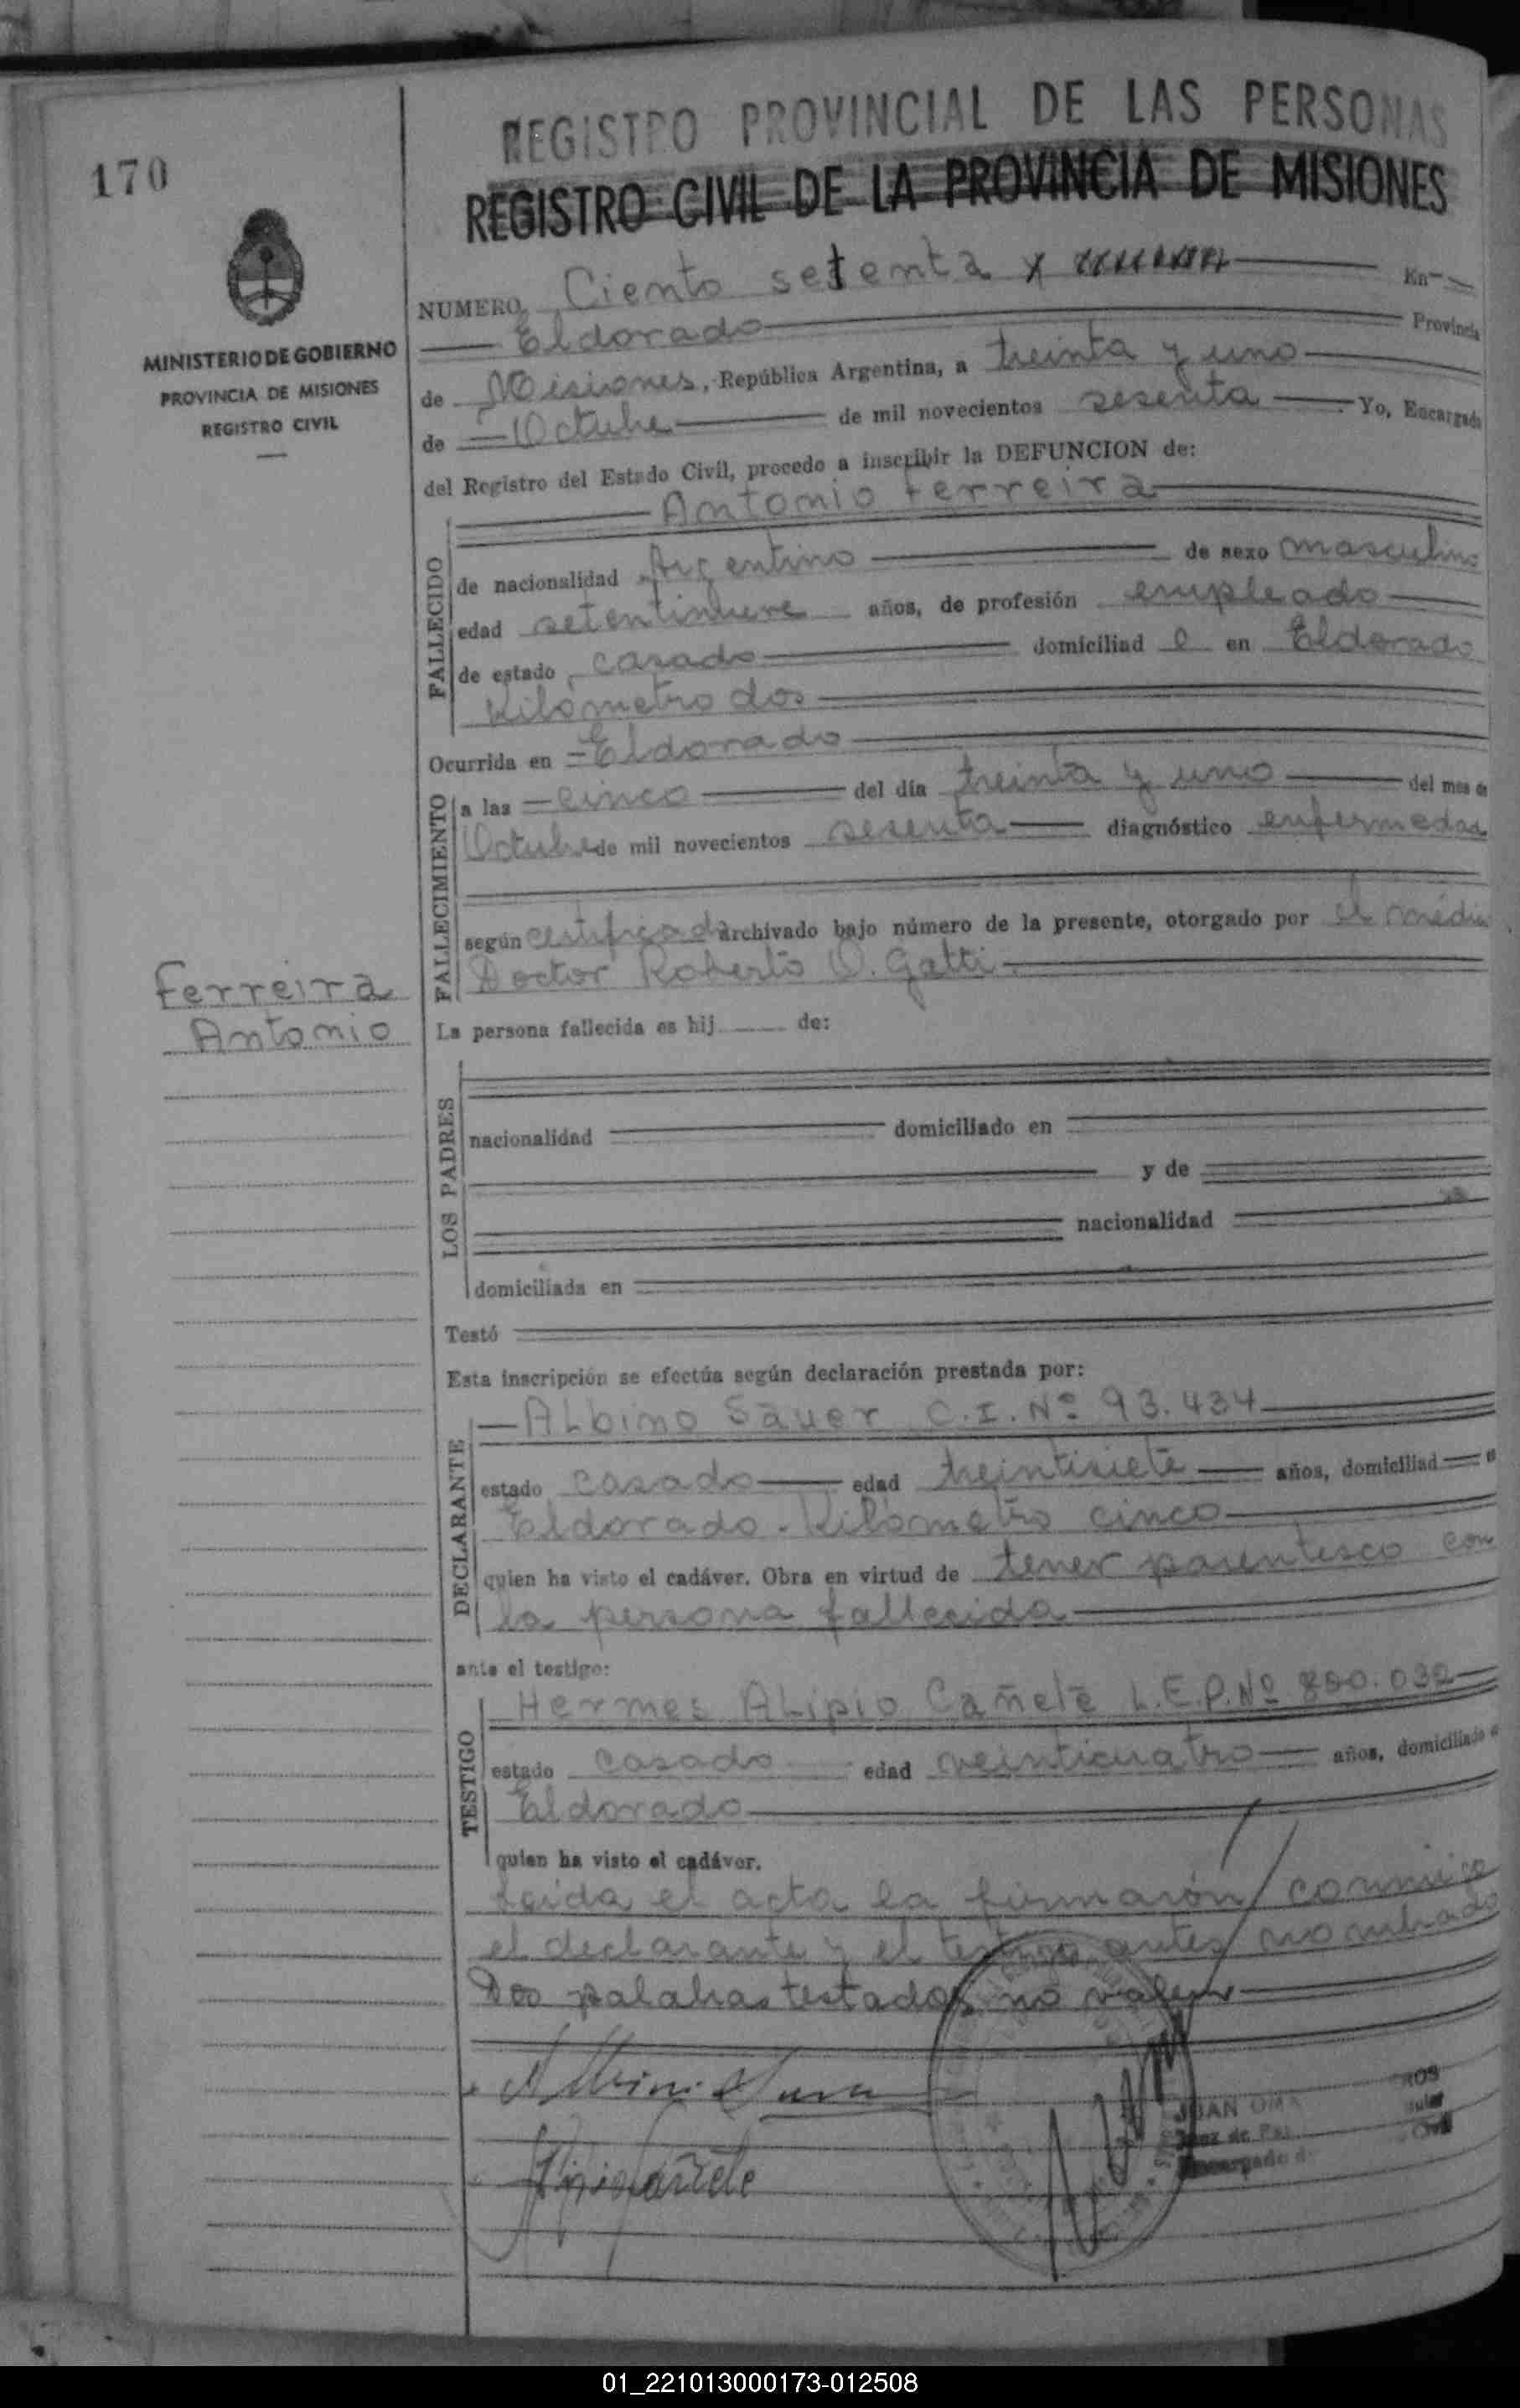 170
REGISTRO PROVINCIAL DE LAS PERSONAS
REGISTRO CIVIL DE LA PROVINCIA DE MISIONES
MINISTERIO DE GOBIERNO
PROVINCIA DE MISIONES
REGISTRO CIVIL
NUMERO Ciento setenta x En
Eldorado Provincia
de Misiones, República Argentina, a treinta y uno
de Octubre de mil novecientos sesenta Yo, Encargado
del Registro del Estado Civil, procedo a inscribir la DEFUNCION de:
Antonio Ferreira
FALLECIDO
de nacionalidad Argentino de sexo masculino
edad setentinueve años, de profesión empleado
de estado casado domiciliad o en Eldorado
Kilómetro dos
Ocurrida en Eldorado
FALLECIMIENTO
a las cinco del día treinta y uno del mes de
Octubre de mil novecientos sesenta diagnóstico enfermedad
según certificado archivado bajo número de la presente, otorgado por el médico
Doctor Roberto O. Gatti
Ferreira
Antonio
La persona fallecida es hij de:
LOS PADRES
nacionalidad domiciliado en
y de
nacionalidad
domiciliada en
Testó
Esta inscripción se efectúa según declaración prestada por:
DECLARANTE
Albino Sauer C.I. Nº 93.434
estado casado edad treintisiete años, domiciliad
Eldorado - Kilómetro cinco
quien ha visto el cadáver. Obra en virtud de tener parentesco con
la persona fallecida
ante el testigo:
TESTIGO
Hermes Alipio Cañete L.E.P. Nº 850.032
estado casado edad veinticuatro años, domiciliado e
Eldorado
quien ha visto el cadáver.
Leida el acta la firmarón conmigo
el declarante y el testigo antes nombrado
Dos palabras testados no valen
JUAN OMA ROS
Juez de Paz
Encargado d Civil
01_221013000173-012508